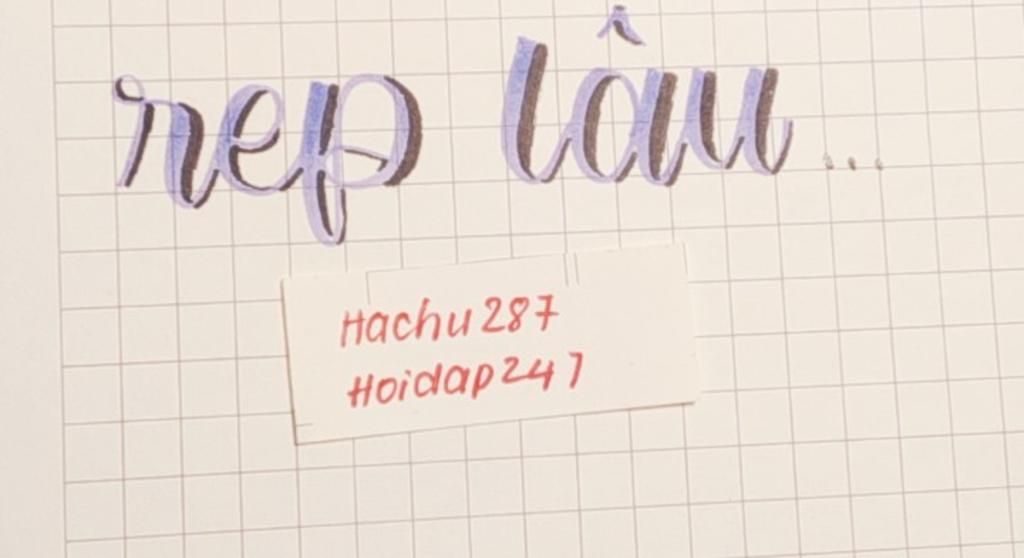 rep lâu...
Hachu287
Hoidap247